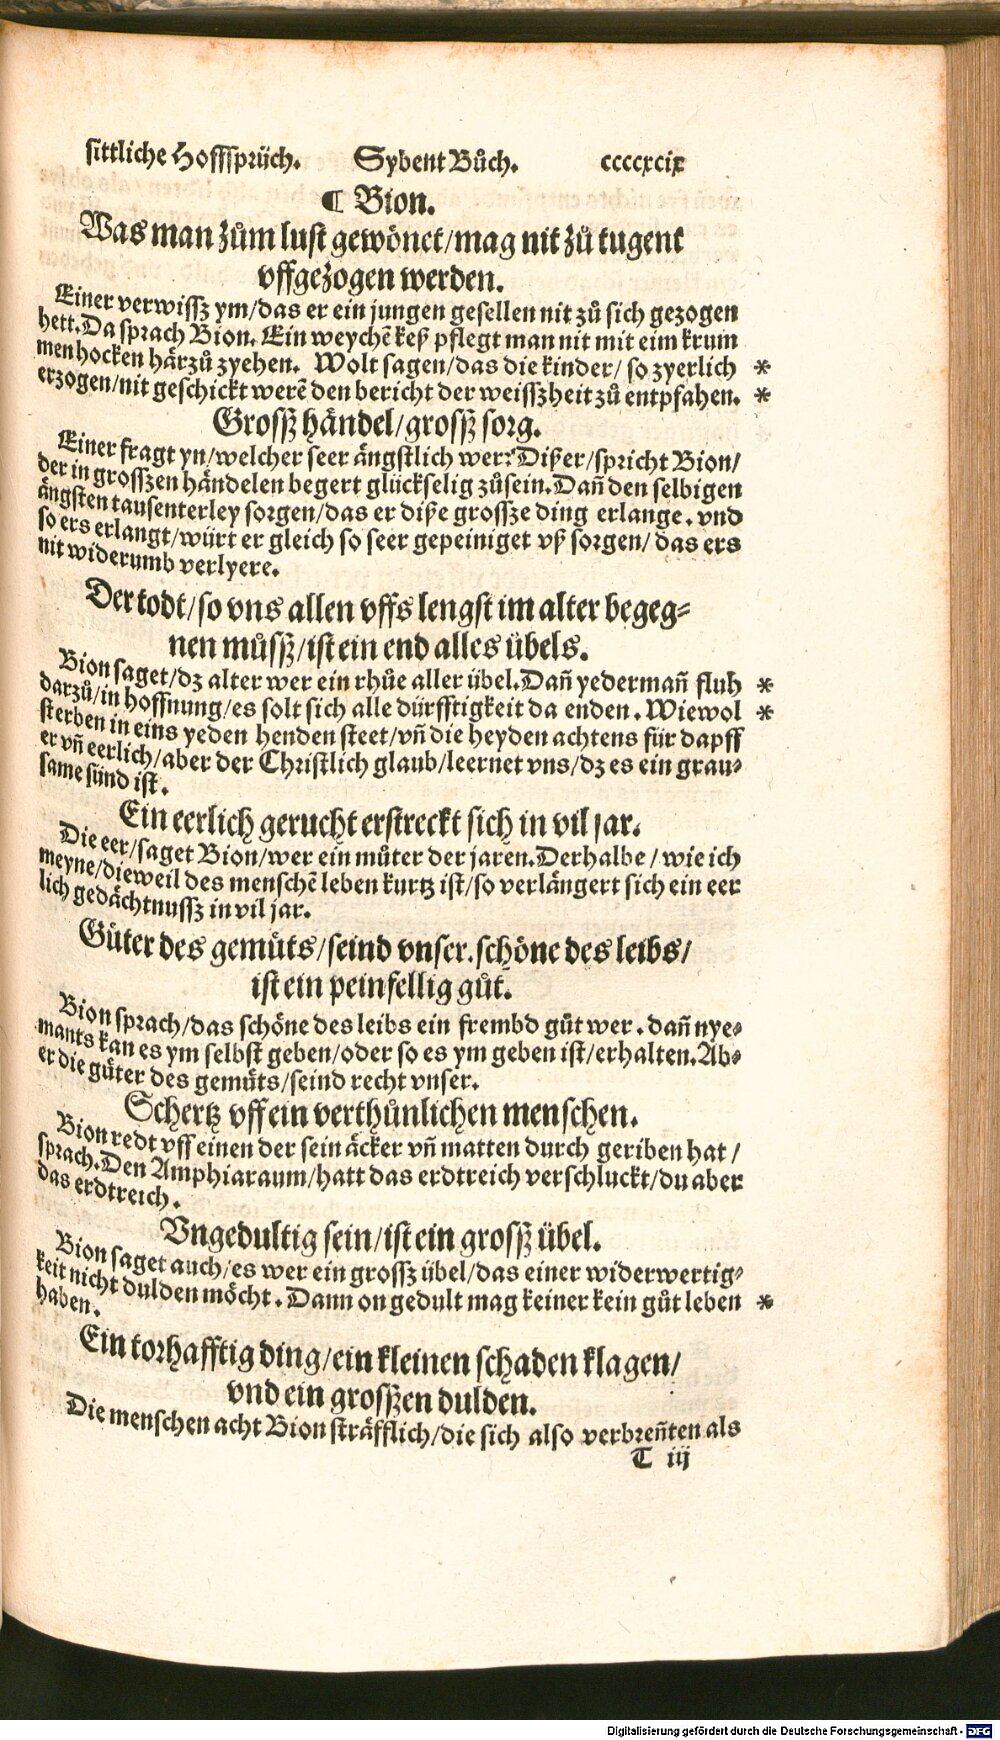 sittliche Hoffsprüch. Sybent Bůch. ccccxcix
¶ Bion.
Was man zům lust gewönet/mag nit zů tugent
vffgezogen werden.
Einer verwissz ym/das er ein jungen gesellen nit zů sich gezogen
hett. Da sprach Bion. Ein weychē keß pflegt man nit mit eim krum
men hocken härzů zyehen. Wolt sagen/das die kinder/ so zyerlich *
erzogen/nit geschickt werē den bericht der weisszheit zů entpfahen. *
Grossz händel/grossz sorg.
Einer fragt yn/welcher seer ängstlich wer? Dißer/spricht Bion/
der in grosszen händelen begert glückselig zůsein. Dañ den selbigen
ängsten tausenterley sorgen/das er diße grossze ding erlange. vnd
so ers erlangt/würt er gleich so seer gepeiniget vß sorgen/ das ers
nit widerumb verlyere.
Der todt/so vns allen vffs lengst im alter begeg=
nen můssz/ist ein end alles übels.
Bion saget/dz alter wer ein rhůe aller übel. Dañ yedermañ fluh *
darzů/in hoffnung/es solt sich alle dürfftigkeit da enden. Wiewol *
sterben in eins yeden henden steet/vñ die heyden achtens für dapff
er vñ eerlich/aber der Christlich glaub/leernet vns/dz es ein grau=
same sünd ist.
Ein eerlich gerucht erstreckt sich in vil jar.
Die eer/saget Bion/wer ein můter der jaren. Derhalbe/ wie ich
meyne/dieweil des menschē leben kurtz ist/so verlängert sich ein eer
lich gedächtnussz in vil jar.
Güter des gemüts/seind vnser. schöne des leibs/
ist ein peinfellig gůt.
Bion sprach/das schöne des leibs ein frembd gůt wer. dañ nye=
mants kan es ym selbst geben/oder so es ym geben ist/erhalten. Ab=
er die güter des gemüts/seind recht vnser.
Schertz vff ein verthůnlichen menschen.
Bion redt vff einen der sein äcker vñ matten durch geriben hat/
sprach. Den Amphiaraum/hatt das erdtreich verschluckt/du aber
das erdtreich.
Vngedultig sein/ist ein grossz übel.
Bion saget auch/es wer ein grossz übel/das einer widerwertig=
keit nicht dulden möcht. Dann on gedult mag keiner kein gůt leben *
haben.
Ein torhafftig ding/ein kleinen schaden klagen/
vnd ein grosszen dulden.
Die menschen acht Bion sträfflich/die sich also verbreñten als
T iij
Digitalisierung gefördert durch die Deutsche Forschungsgemeinschaft - DFG